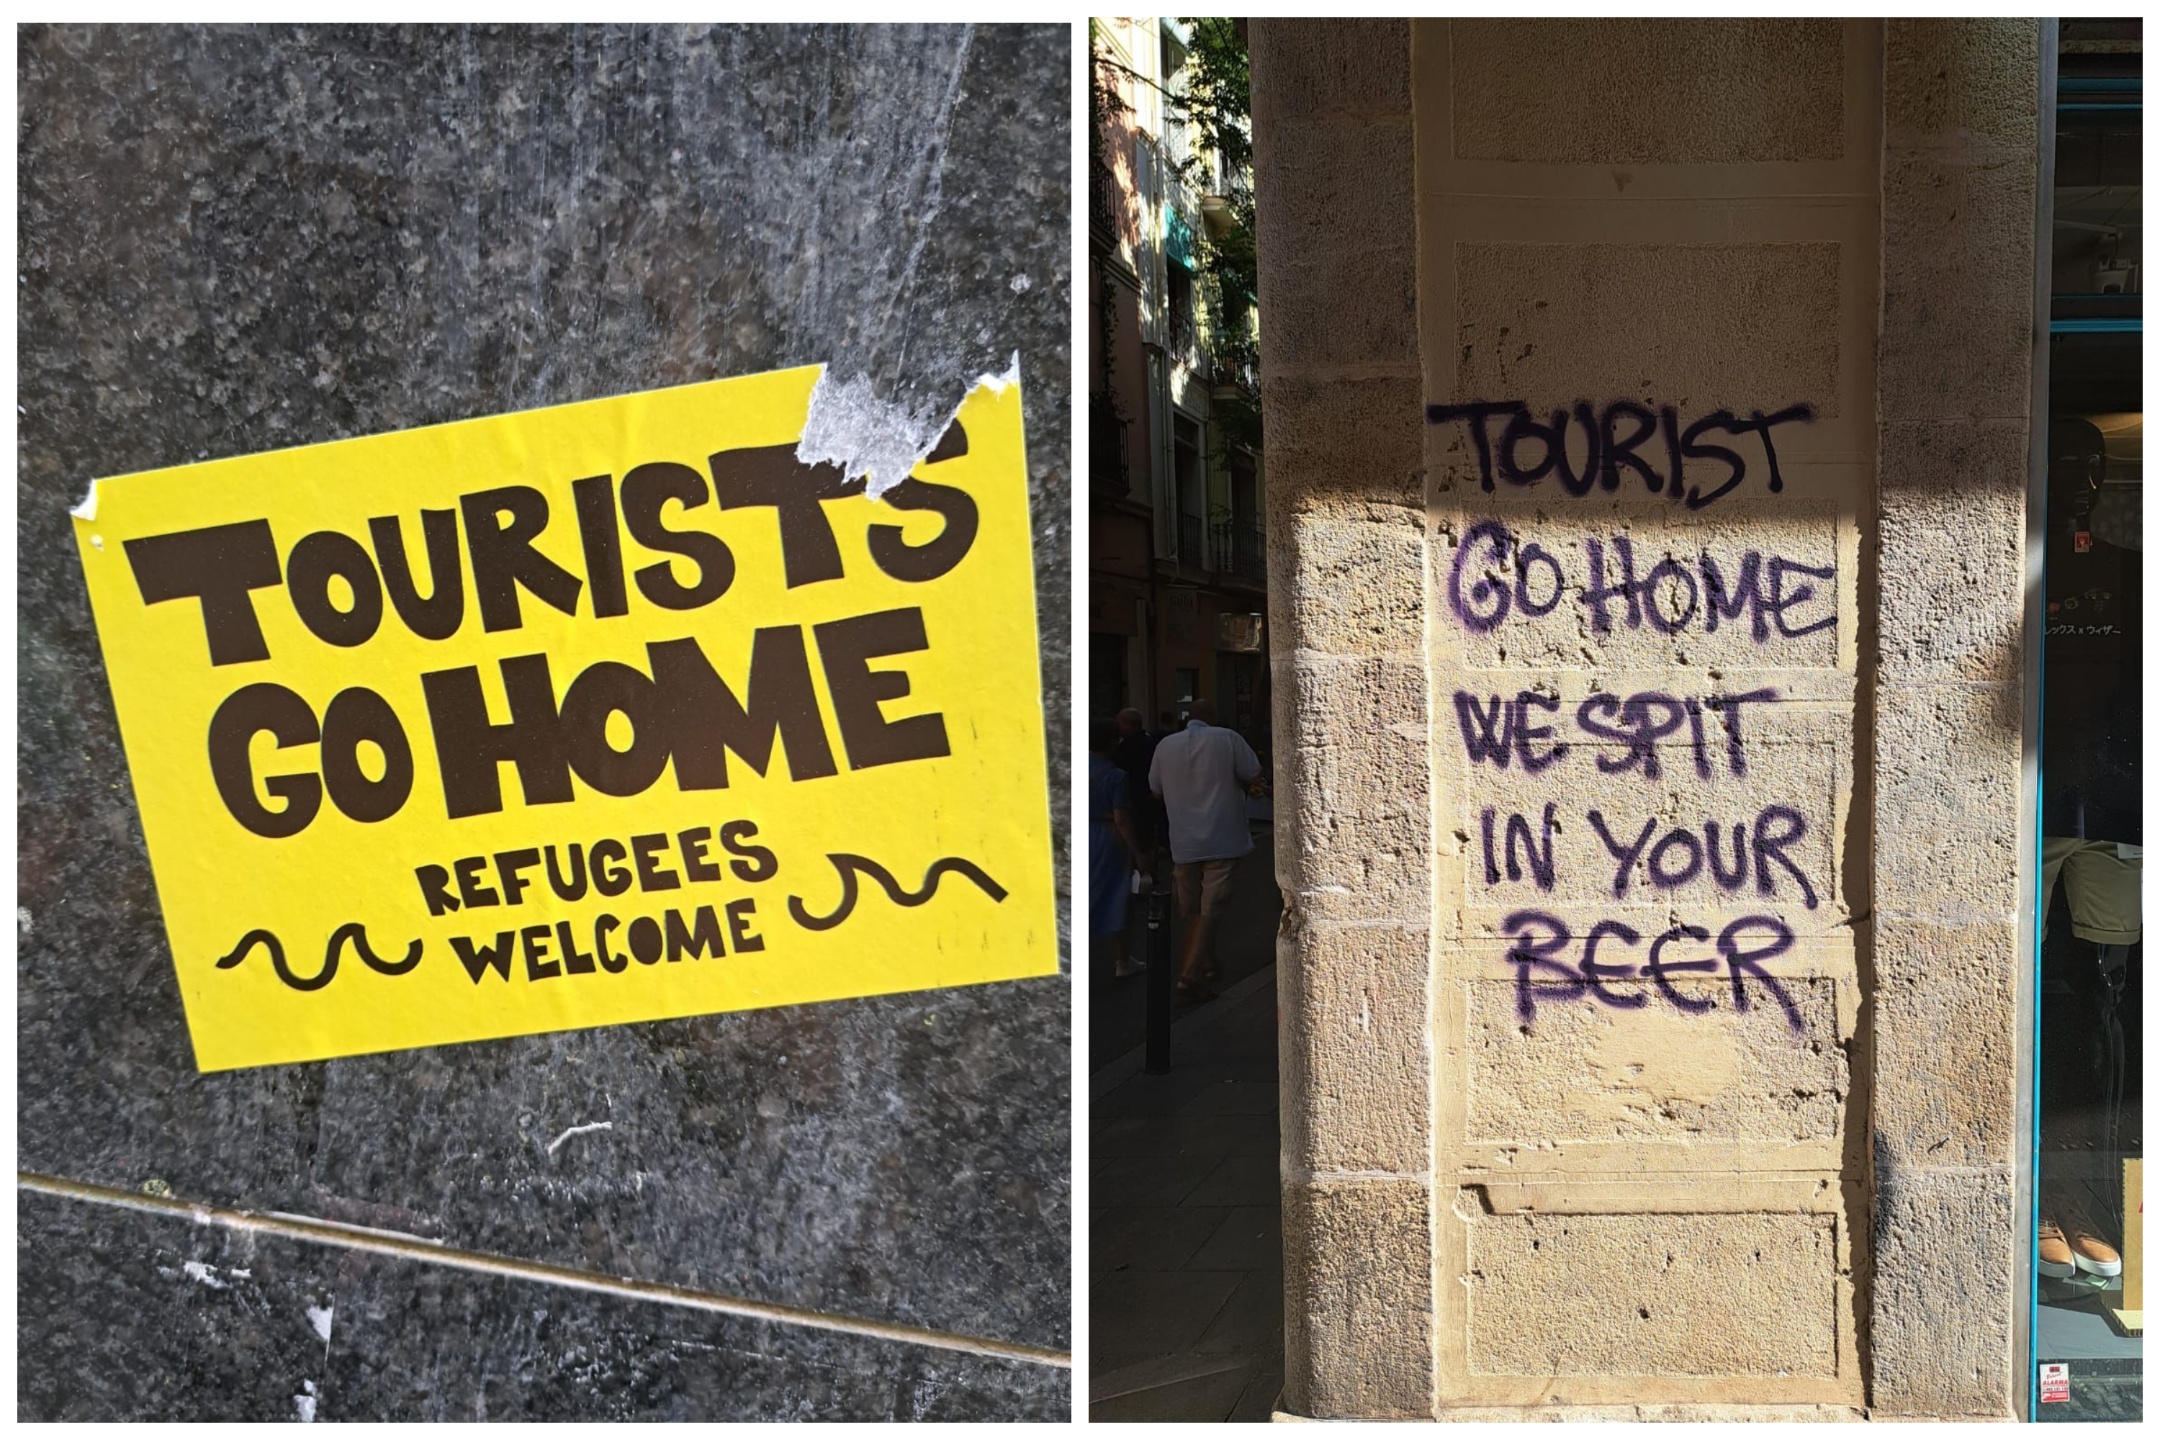 TOURISTS
GO HOME
REFUGEES
WELCOME
TOURIST
GO HOME
WE SPIT
IN YOUR
BEER
レックス×ウィザー
ALARMA